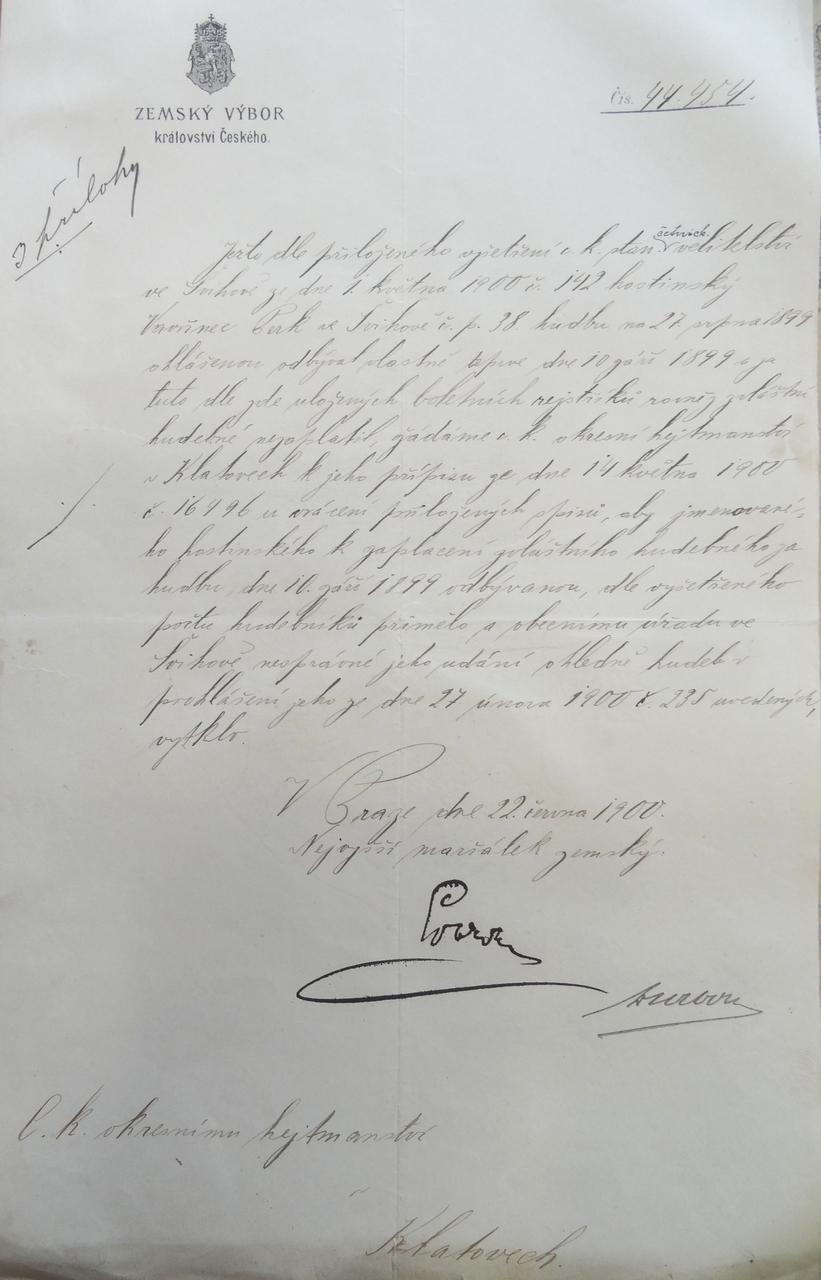 ZEMSKÝ VÝBOR
království Českého.
Čís. 44.454.
3 přílohy
Ježto dle přiloženého vyšetření c. k. stan. četnick. velitelství
ve Švihově ze dne 1. května 1900 č. 142 hostinský
Vavřinec Perk ve Švihově č. p. 38 hudbu na 27. srpna 1899
ohlášenou odbýval vlastně teprve dne 10 září 1899 a za
tuto dle zde uložených boletních rejstříků rovněž zvláštní
hudebné nezaplatil, žádáme c. k. okresní hejtmanství
v Klatovech k jeho přípisu ze dne 14 května 1900
č. 16496 u vrácení přiložených spisů, aby jmenované-
ho hostinského k zaplacení zvláštního hudebného za
hudbu, dne 10. září 1899 odbývanou, dle vyšetřeného
počtu hudebníků přimělo a obecnímu úřadu ve
Švihově, nesprávné jeho udání ohledně hudeb v
prohlášení jeho ze dne 27 února 1900 č. 235 uvedených,
vytklo.
V Praze dne 22. června 1900.
Nejvyšší maršálek zemský:
C. k. okresnímu hejtmanství
v
Klatovech.